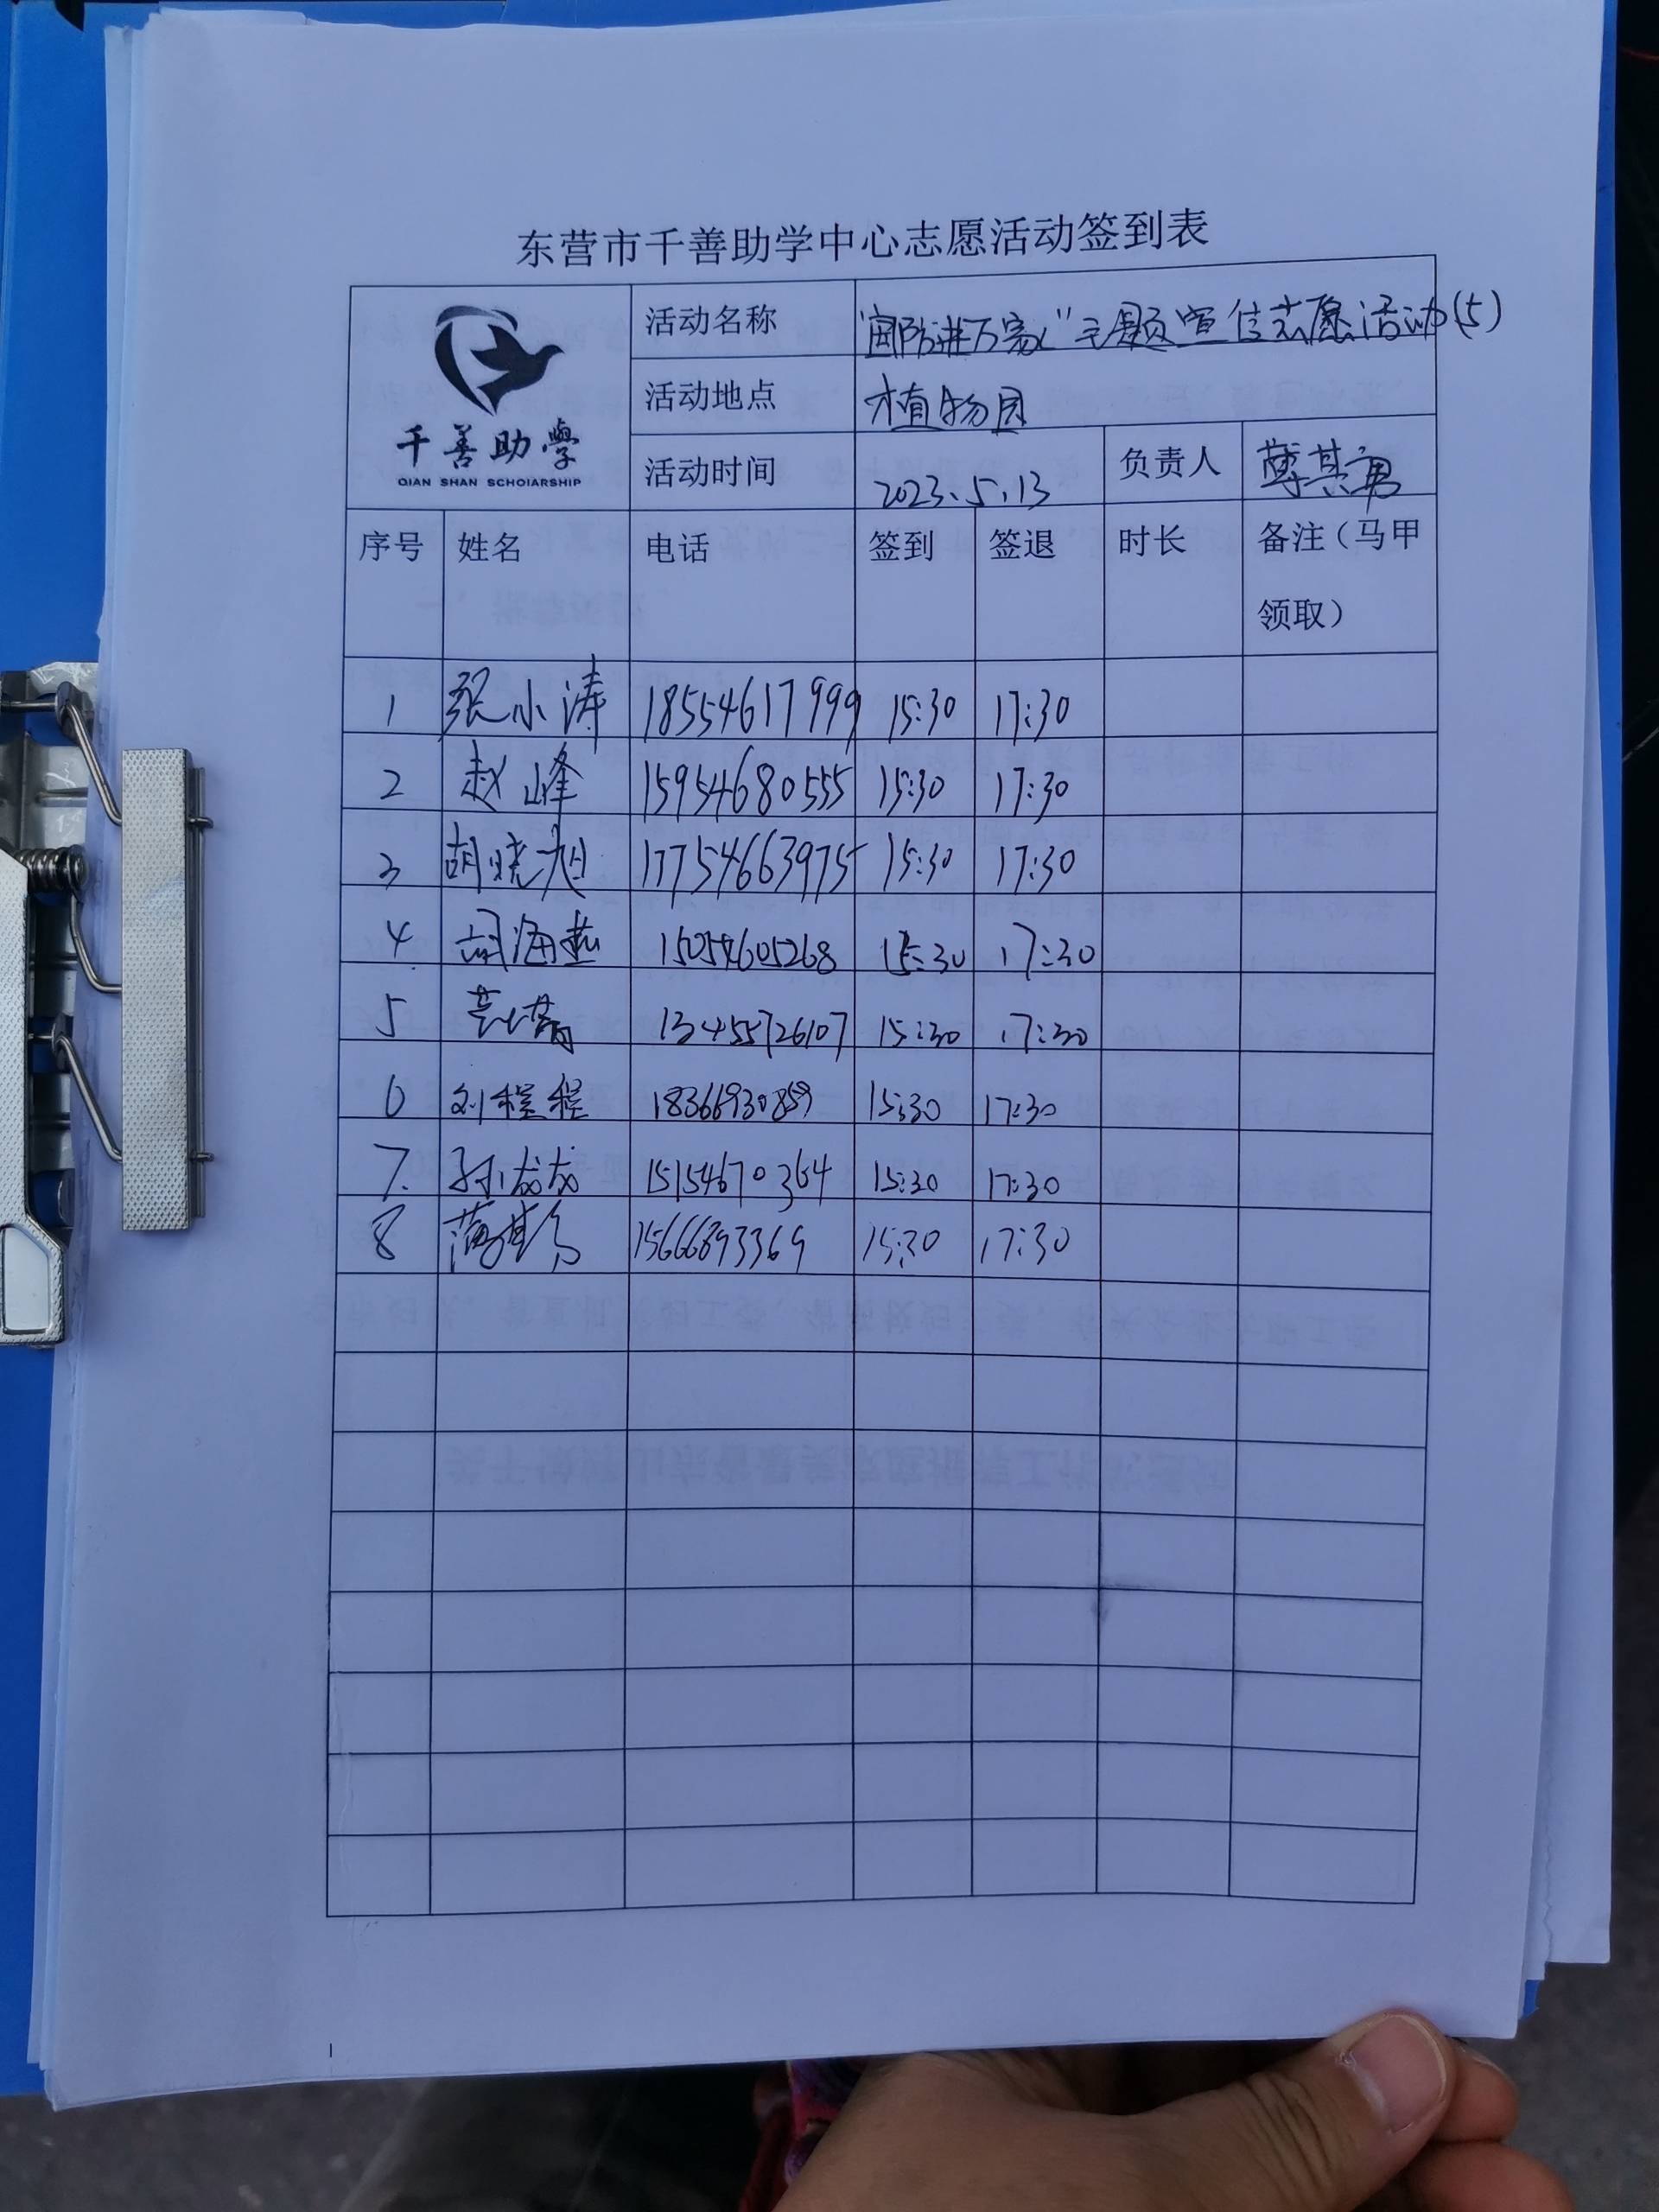 东营市千善助学中心志愿活动签到表
千善助學
QIAN SHAN SCHOIARSHIP
活动名称 "国防进万家"主题宣传志愿活动(5)
活动地点 植物园
活动时间 2023.5.13 负责人
序号 姓名 电话 签到 签退 时长 备注（马甲
领取）
1 张小涛 18554617999 15:30 17:30
2 赵峰 15954680555 15:30 17:30
3 胡晓旭 17754663975 15:30 17:30
4 胡海燕 15054605268 15:30 17:30
5 13455726107 15:30 17:30
6 刘程程 18366930859 15:30 17:30
7. 孙龙龙 15154670364 15:30 17:30
8 15666893369 15:30 17:30